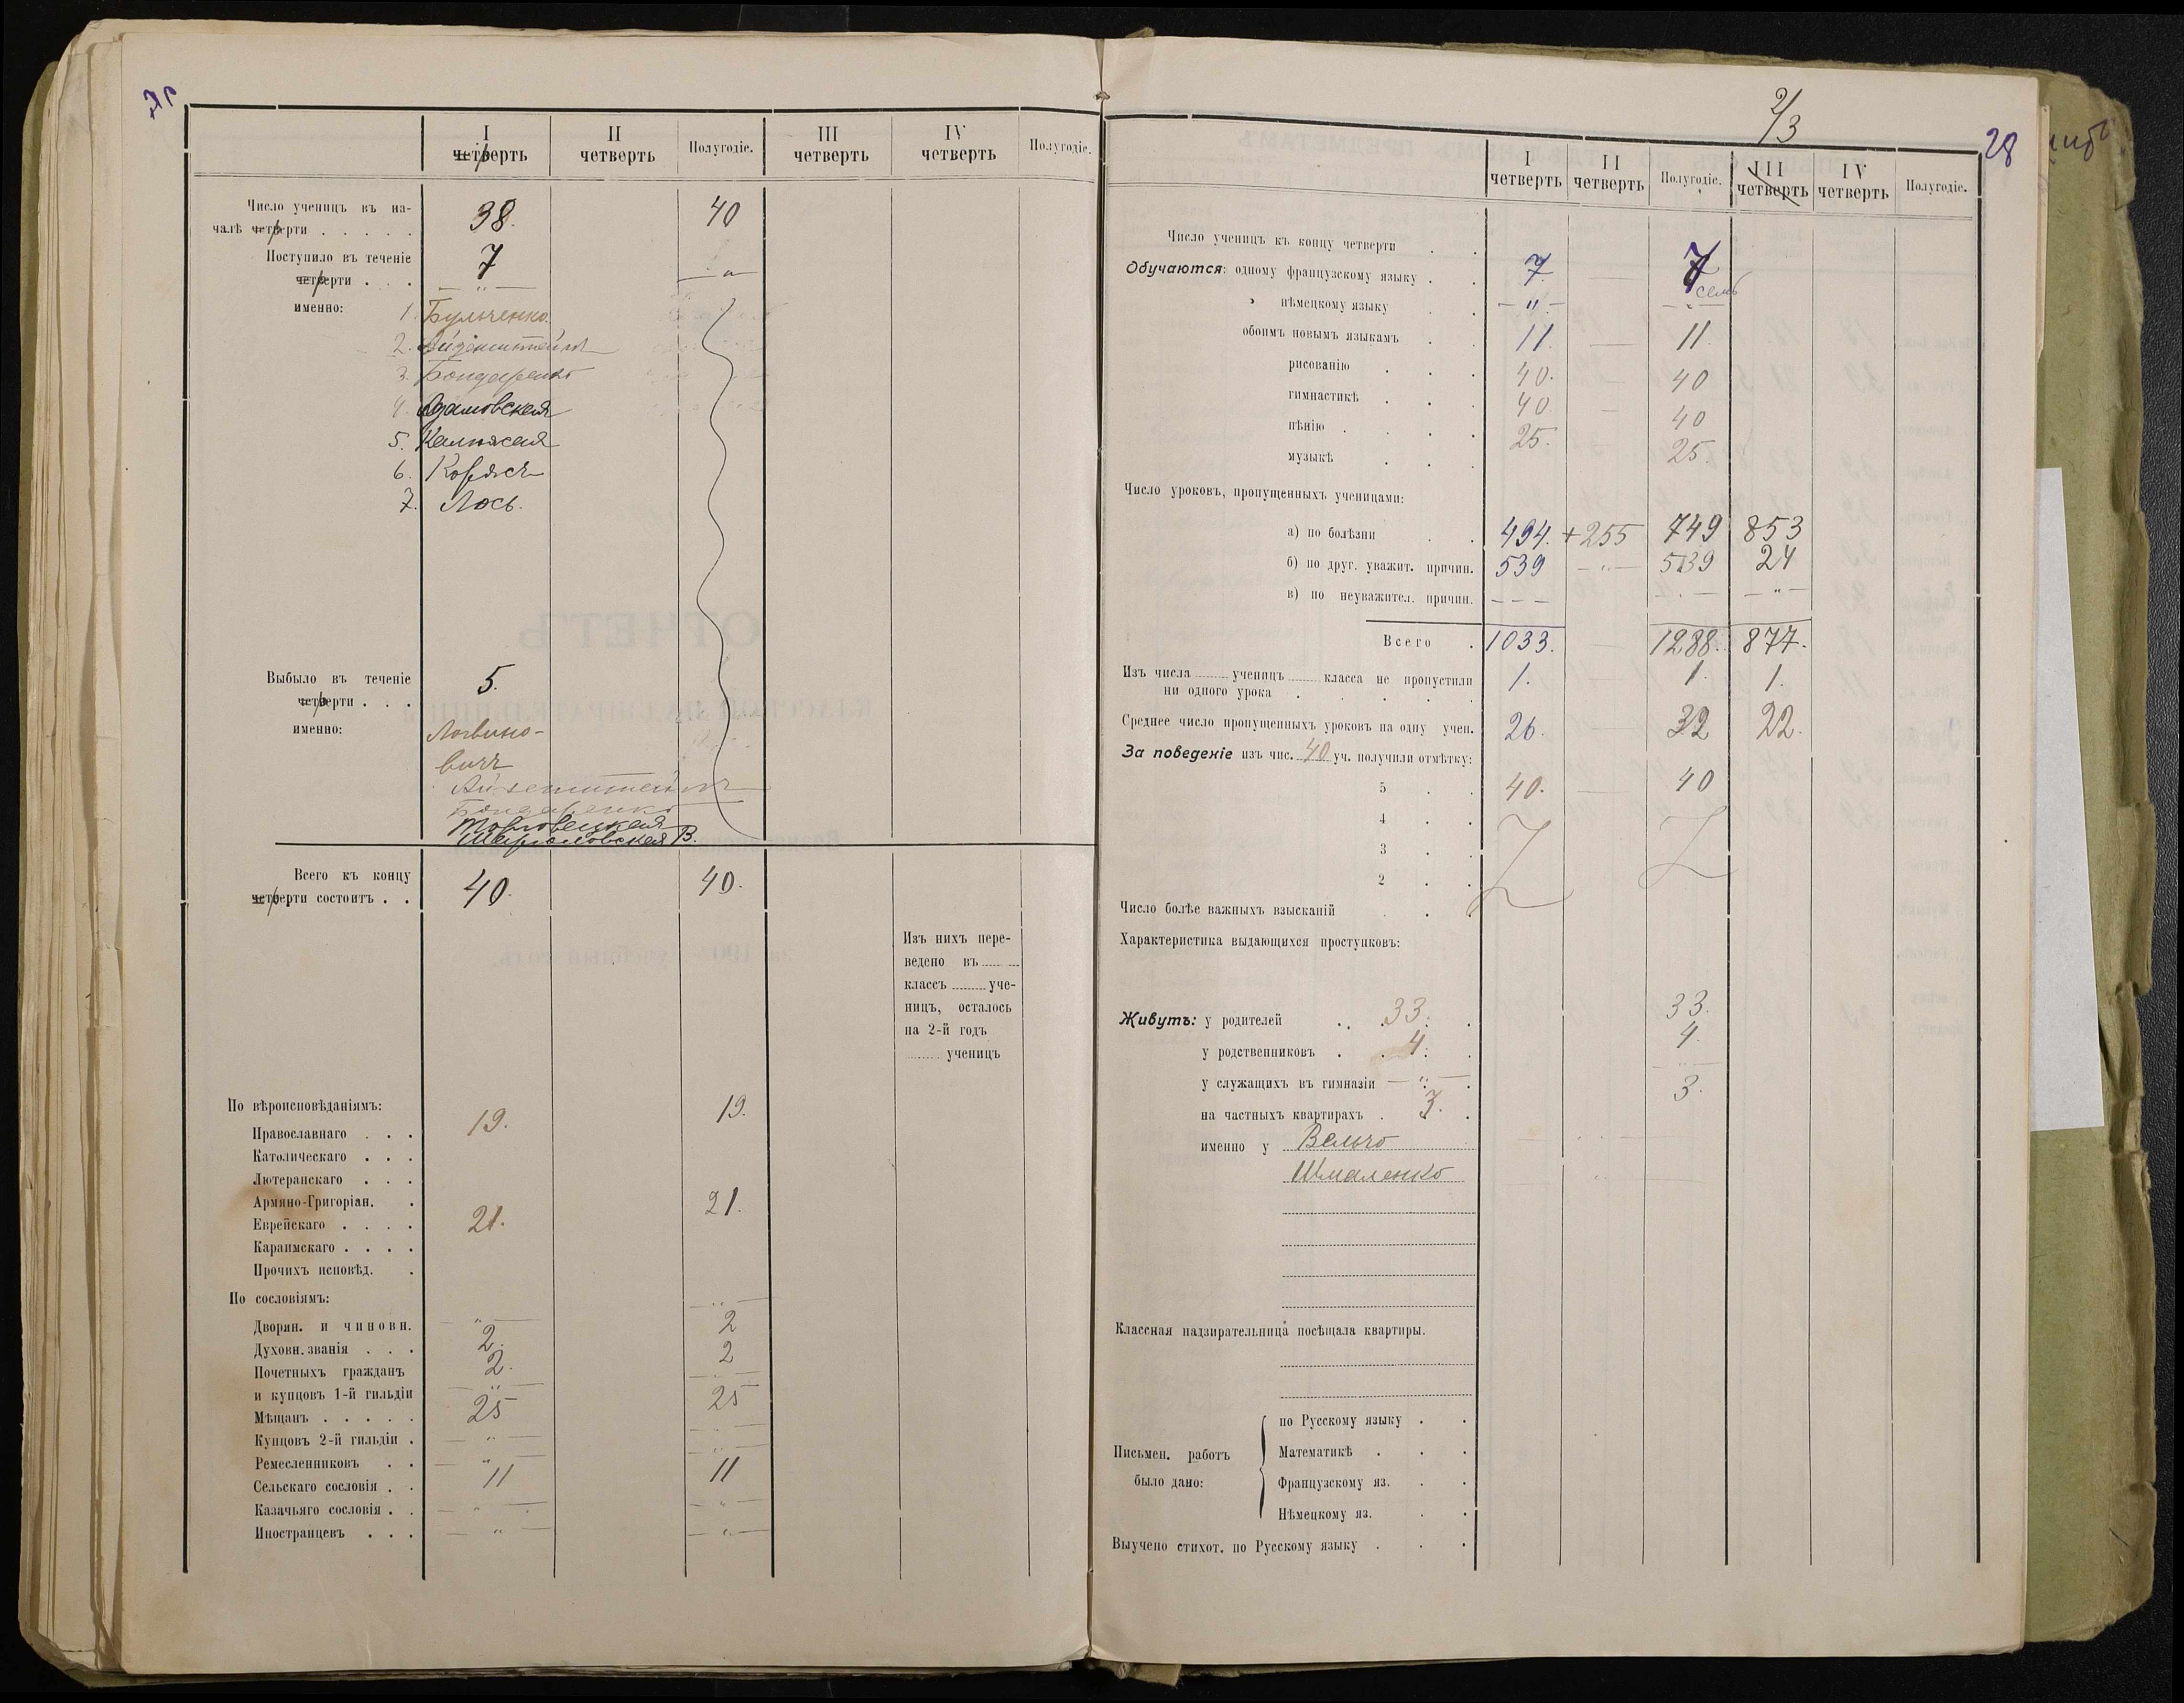 I четверть II четверть Полугодіе. III четверть IV четверть Полугодіе.
Число ученицъ въ на-
чалѣ четверти . . . . . 38. 40
Поступило въ теченіе 7
четверти . . .
именно: 1. Бульченко.
2. Айзенштейнъ
3. Бондаренко
4. Адамовская
5. Калюжная
6. Коржъ
7. Лось.
Выбыло въ теченіе 5.
четверти . . .
именно: Логвино-
вичъ
Айзенштейнъ
Бондаренко
Шараповская В.
Всего къ концу
четверти состоитъ . . 40. 40.
Изъ нихъ пере-
ведено въ
классъ уче-
ницъ, осталось
на 2-й годъ
ученицъ
По вѣроисповѣданіямъ:
Православнаго . . . 19. 19.
Католическаго . . .
Лютеранскаго . . .
Армяно-Григоріан. .
Еврейскаго . . . . 21. 21.
Караимскаго . . . .
Прочихъ исповѣд. .
По сословіямъ:
Дворян. и чиновн. 2. 2
Духовн. званія . . . 2. 2
Почетныхъ гражданъ
и купцовъ 1-й гильдіи
Мѣщанъ . . . . . 25 25
Купцовъ 2-й гильдіи .
Ремесленниковъ . .
Сельскаго сословія . . 11 11
Казачьяго сословія . .
Иностранцевъ . . .
2/3
28
I четверть II четверть Полугодіе. III четверть IV четверть Полугодіе.
Число ученицъ къ концу четверти . .
Обучаются: одному французскому языку . . 7. 7
семь
" нѣмецкому языку . . — " — — " —
обоимъ новымъ языкамъ . . 11. 11.
рисованію . . . 40. 40
гимнастикѣ . . . 40. 40
пѣнію . . . . 25. 25.
музыкѣ . . .
Число уроковъ, пропущенныхъ ученицами:
а) по болѣзни . . 494. +255 749 853
б) по друг. уважит. причин. 539 — " — 539 24
в) по неуважител. причин. — — — — " — — " —
Всего . 1033. 1288. 877.
Изъ числа ученицъ класса не пропустили 1. 1. 1.
ни одного урока . . . .
Среднее число пропущенныхъ уроковъ на одну учен. 26. 32 22.
За поведеніе изъ чис. 40 уч. получили отмѣтку:
5 . . 40. 40
4 . .
3 . .
2 . .
Число болѣе важныхъ взысканій . .
Характеристика выдающихся проступковъ:
Живутъ: у родителей . . . 33. . 33.
у родственниковъ . . 4. . 4.
у служащихъ въ гимназіи — " — .
на частныхъ квартирахъ . 3. . 3.
именно у Вельчо
Шмаленко
Классная надзирательница посѣщала квартиры.
по Русскому языку . .
Письмен. работъ Математикѣ . . .
было дано: Французскому яз. . .
Нѣмецкому яз. . .
Выучено стихот. по Русскому языку . . .